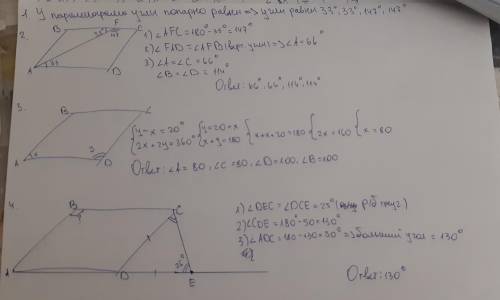 1. У параллелограмма углы попарно равны => углы равны 33°, 33°, 147°, 147°
2.
B F C
33° 147
A D
1) ∠AFC = 180° - 33° = 147°
2) ∠FAD = ∠AFB (верт. углы) => ∠A = 66°
3) ∠A = ∠C = 66°
∠B = ∠D = 114°
Ответ: 66°, 66°, 114°, 114°
3.
B C
A x y D
{y - x = 20° {y = 20 + x {x + x + 20 = 180 {2x = 160 {x = 80
{2x + 2y = 360° {x + y = 180
Ответ: ∠A = 80, ∠C = 80, ∠D = 100, ∠B = 100
4.
B C
A D E
25°
1) ∠DEC = ∠DCE = 25° р/б треуг.)
2) ∠CDE = 180° - 50 = 130°
3) ∠ADC = 180 - 130 = 50° => больший угол = 130°
Ответ: 130°